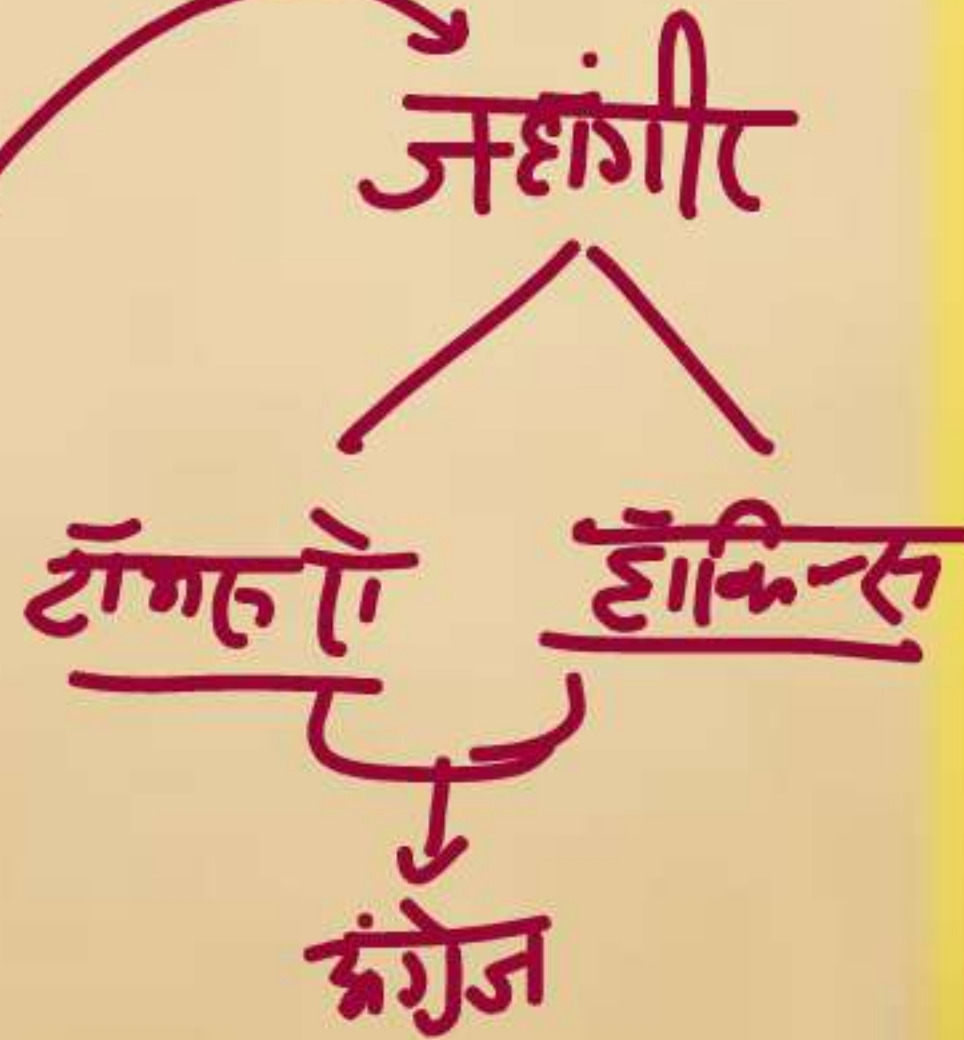 जहांगीर
टॉमस रो
हॉकिन्स
अंग्रेज